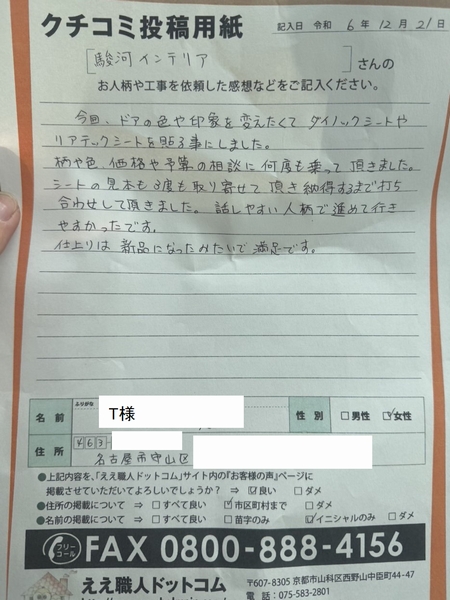 クチコミ投稿用紙 記入日 令和 6年12月21日
[駿河インテリア]さんの
お人柄や工事を依頼した感想などをご記入ください。
今回、ドアの色や印象を変えたくて ダイノックシートや
リアテックシートを貼る事にしました。
柄や色、価格や予算の相談に何度も乗って頂きました。
シートの見本も3度も取り寄せて頂き納得するまで打ち
合わせして頂きました。話しやすい人柄で進めて行き
やすかったです。
仕上りは 新品になったみたいで満足です。
ふりがな
名前 T様 性別 □男性 ☑女性
住所 〒463-
名古屋市守山区
●上記内容を、「ええ職人ドットコム」サイト内の『お客様の声』ページに
掲載させていただいてよろしいでしょうか? ⇒ ☑良い □ダメ
●住所の掲載について ⇒ □すべて良い ☑市区町村まで □ダメ
●名前の掲載について ⇒ □すべて良い □苗字のみ ☑イニシャルのみ □ダメ
フリーコール FAX 0800-888-4156
ええ職人ドットコム
〒607-8305 京都市山科区西野山中臣町44-47
電話:075-583-2801